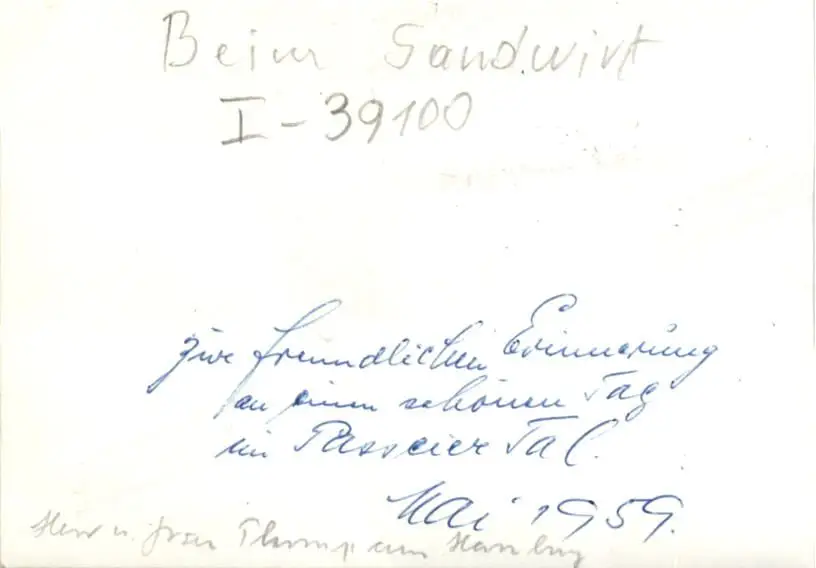 Beim Sandwirt
I-39100
zur freundlichen Erinnerung
an einen schönen Tag
im Passeier Tal.
Mai 1959.
Herr u. Frau aus Hamburg